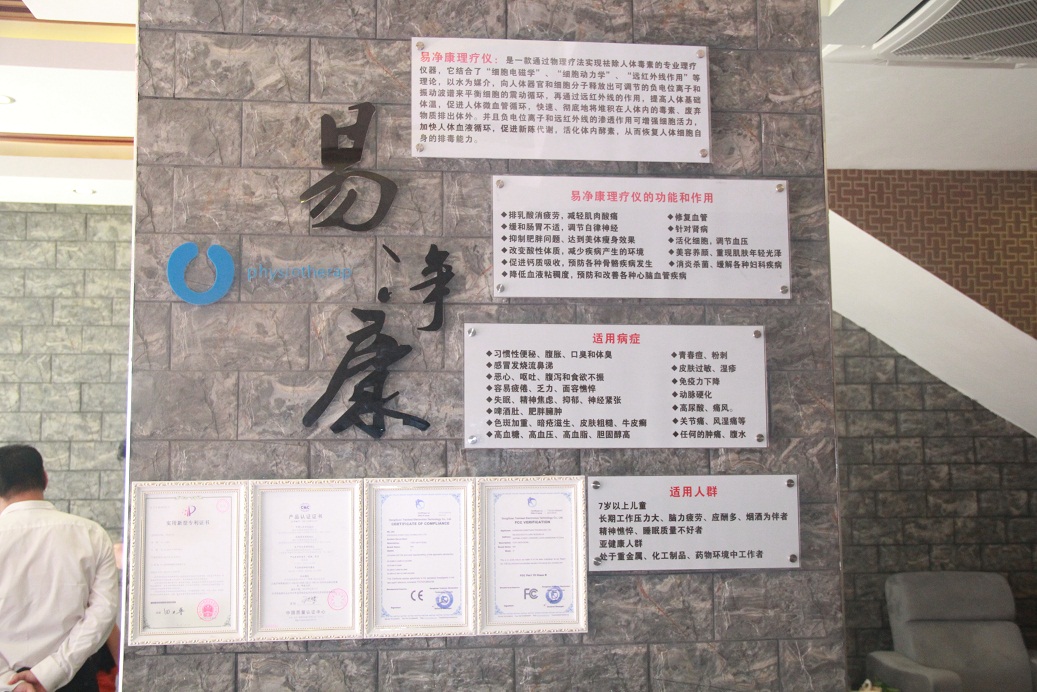 易净康理疗仪：是一款通过物理疗法实现祛除人体毒素的专业理疗
仪器，它结合了“细胞电磁学”、“细胞动力学”、“远红外线作用”等
理论，以水为媒介，向人体器官和细胞分子释放出可调节的负电位离子和
振动波谱来平衡细胞的震动循环，再通过远红外线的作用，提高人体基础
体温，促进人体微血管循环，快速、彻底地将堆积在人体内的毒素、废弃
物质排出体外。并且负电位离子和远红外线的渗透作用可增强细胞活力，
加快人体血液循环，促进新陈代谢，活化体内酵素，从而恢复人体细胞自
身的排毒能力。
易净康
physiotherap
易净康理疗仪的功能和作用
◆排乳酸消疲劳，减轻肌肉酸痛
◆缓和肠胃不适，调节自律神经
◆抑制肥胖问题、达到美体瘦身效果
◆改变酸性体质，减少疾病产生的环境
◆促进钙质吸收，预防各种骨骼疾病发生
◆降低血液粘稠度，预防和改善各种心脑血管疾病
◆修复血管
◆针对肾病
◆活化细胞，调节血压
◆美容养颜、重现肌肤年轻光泽
◆消炎杀菌、缓解各种妇科疾病
适用病症
◆习惯性便秘、腹胀、口臭和体臭
◆感冒发烧流鼻涕
◆恶心、呕吐、腹泻和食欲不振
◆容易疲倦、乏力、面容憔悴
◆失眠、精神焦虑、抑郁、神经紧张
◆啤酒肚、肥胖臃肿
◆色斑加重、暗疮滋生、皮肤粗糙、牛皮癣
◆高血糖、高血压、高血脂、胆固醇高
◆青春痘、粉刺
◆皮肤过敏、湿疹
◆免疫力下降
◆动脉硬化
◆高尿酸、痛风。
◆关节痛、风湿痛等
◆任何的肿痛、腹水
适用人群
7岁以上儿童
长期工作压力大、脑力疲劳、应酬多、烟酒为伴者
精神憔悴、睡眠质量不好者
亚健康人群
处于重金属、化工制品、药物环境中工作者
实用新型专利证书
产品认证证书
中国质量认证中心
CERTIFICATE OF COMPLIANCE
CE
FCC VERIFICATION
FC